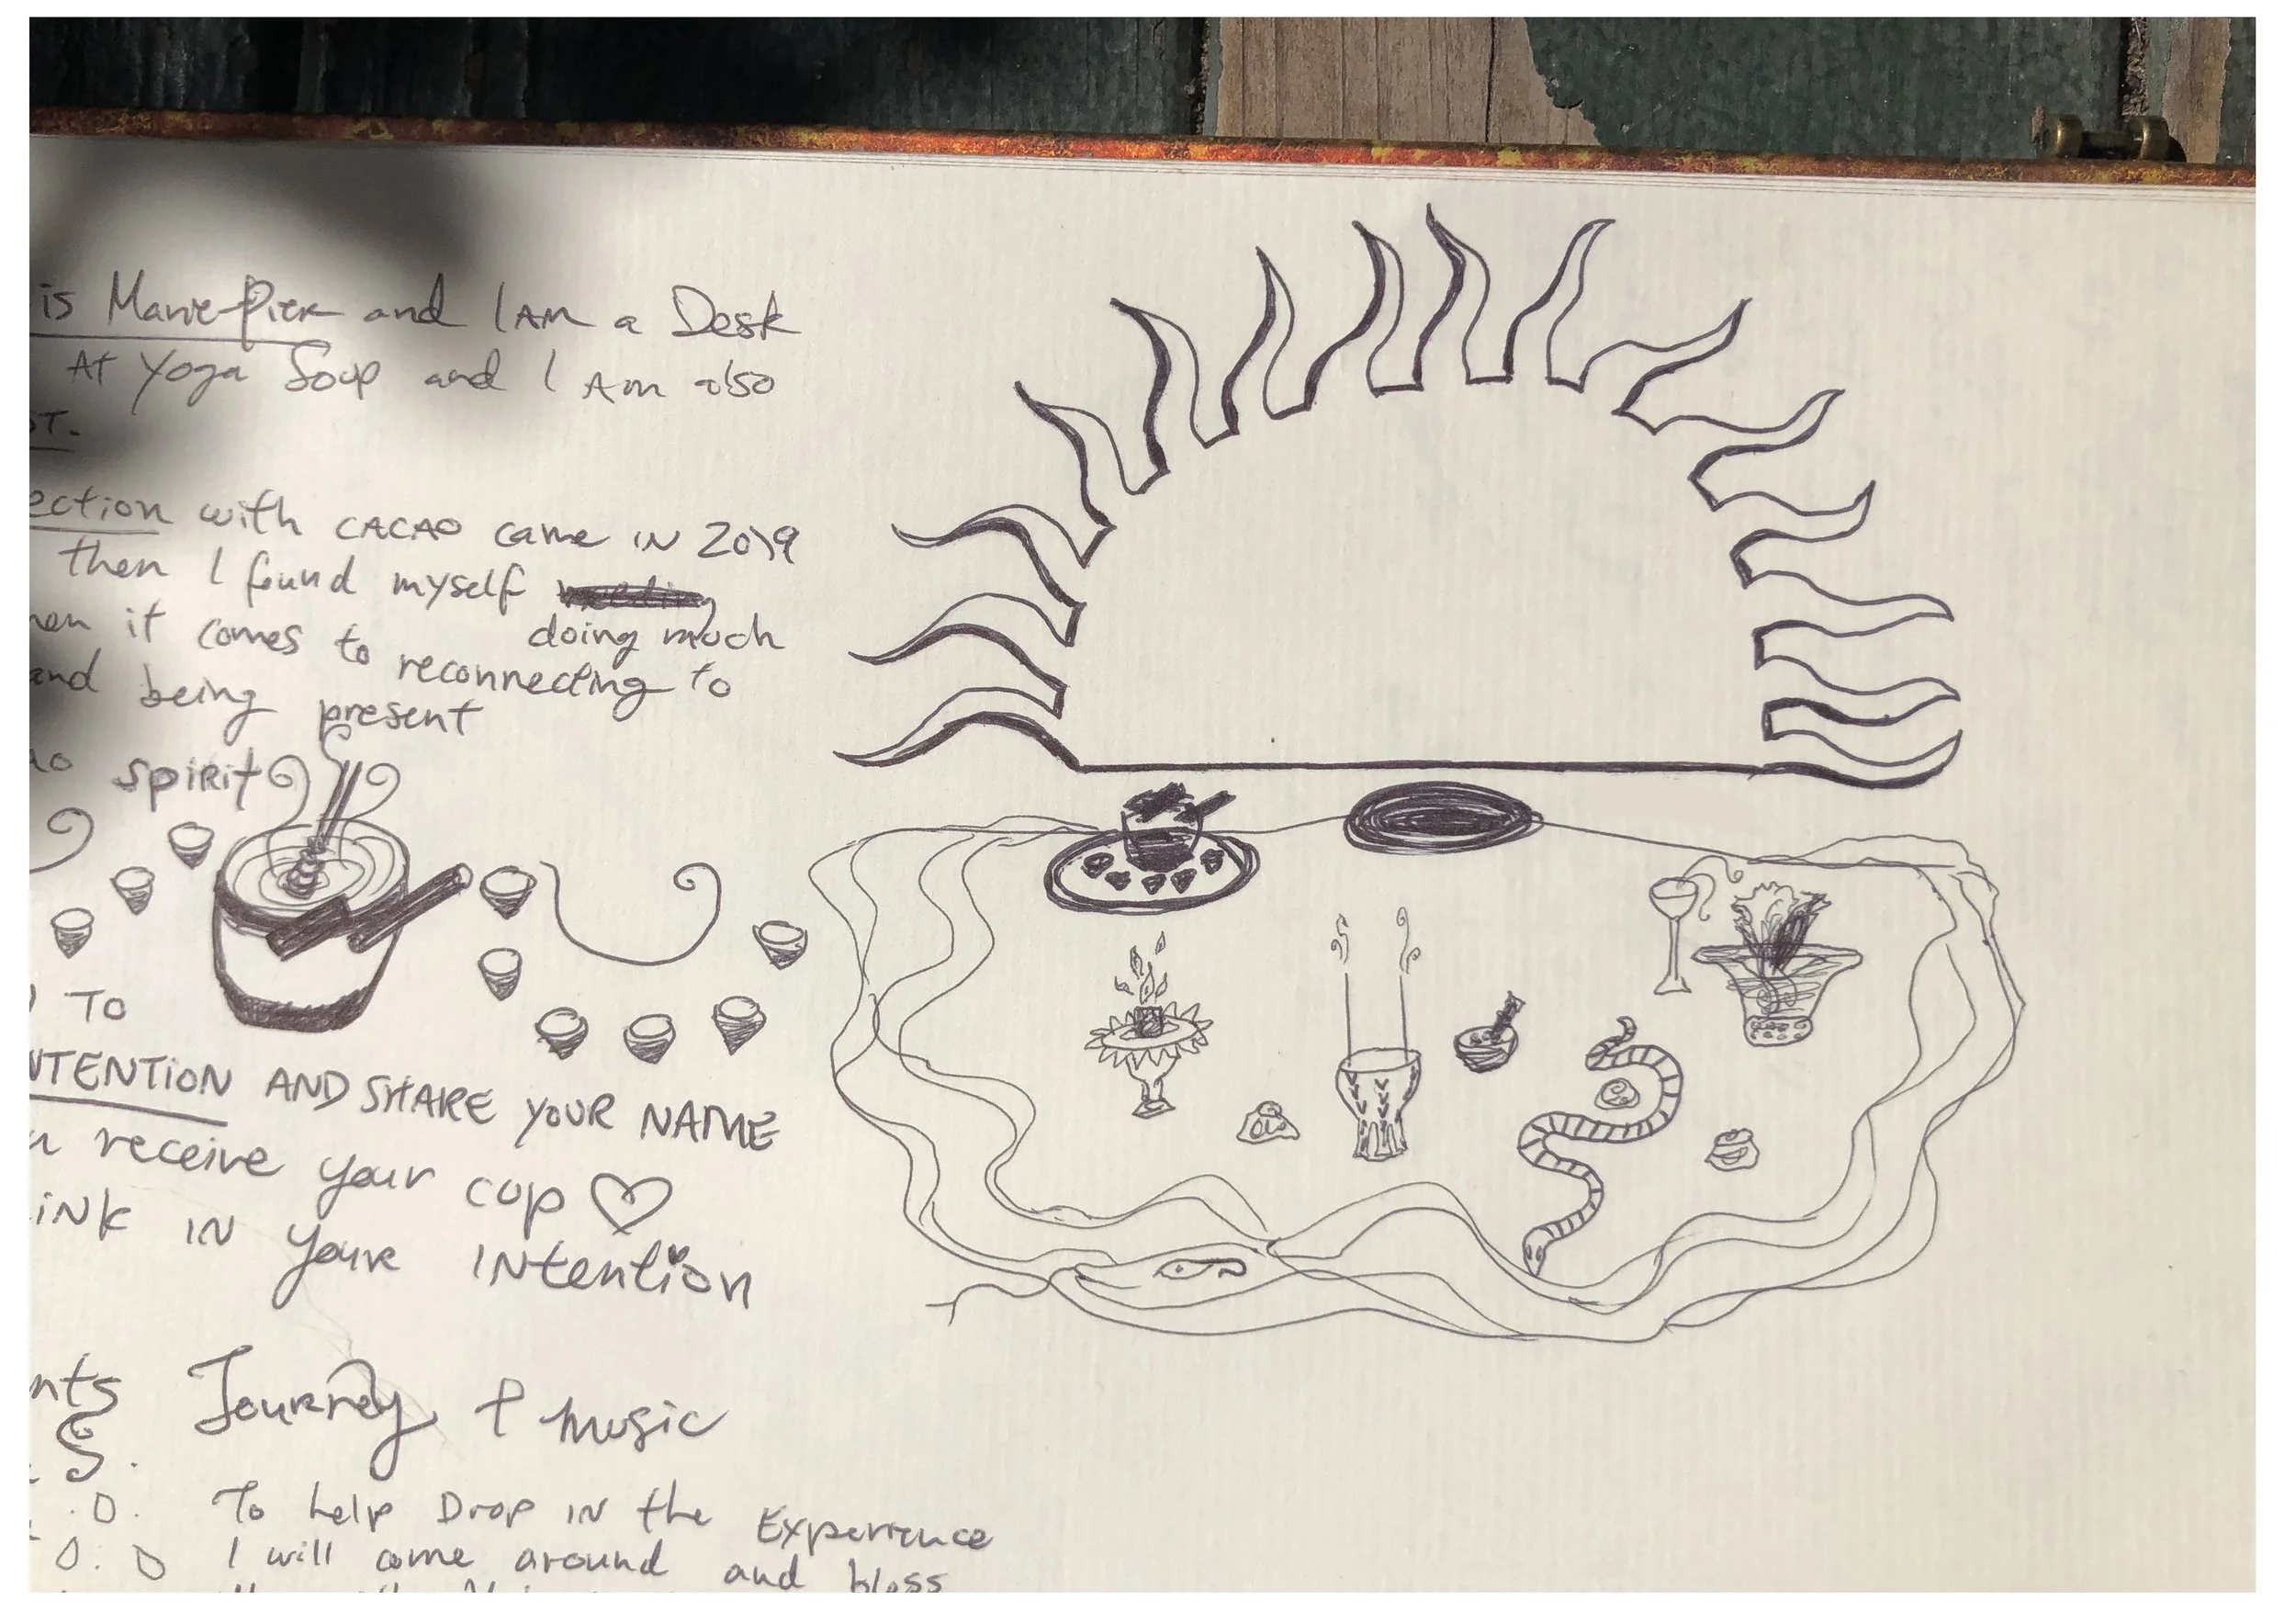 is Marie-Pier and I AM a Desk
At Yoga Soup and I Am also
ST.
ection with CACAO came IN 2019
then I found myself
doing much
hen it comes to reconnecting to
and being present
AO spirit
TO
NTENTION AND SHARE YOUR NAME
u receive your cup
INK IN your INtention
nts Journey + music
To help Drop IN the Experience
I will come around and bless